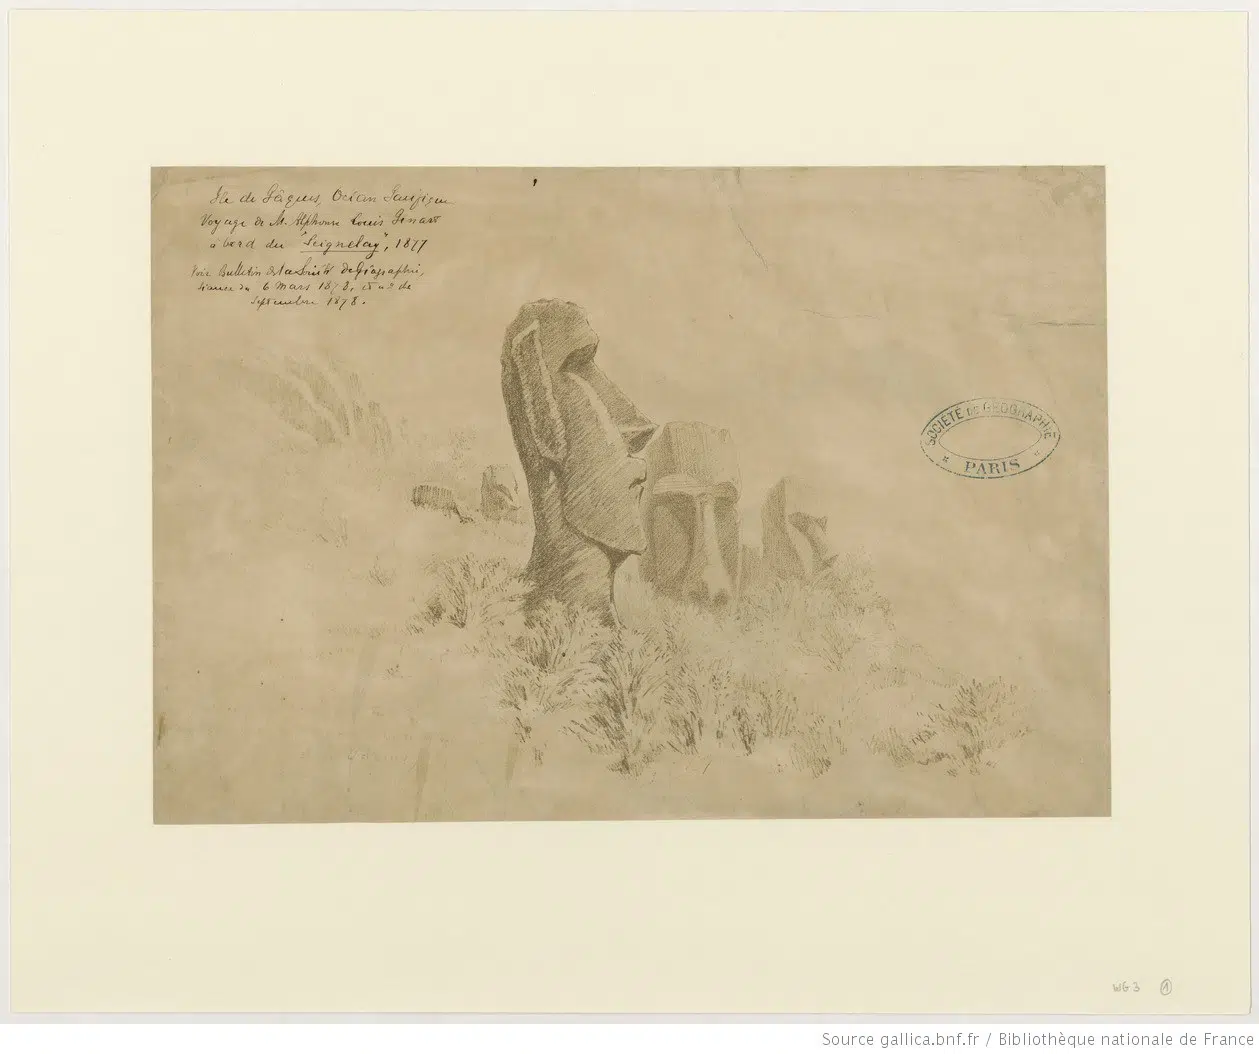 Ile de Pâques, Océan Pacifique
Voyage de M. Alphonse Louis Pinart
à bord du "Seignelay", 1877
Voir Bulletin de la Société de Géographie,
séance du 6 Mars 1878, et de
Septembre 1878.
SOCIÉTÉ DE GÉOGRAPHIE
* PARIS *
WG 3 1
Source gallica.bnf.fr / Bibliothèque nationale de France